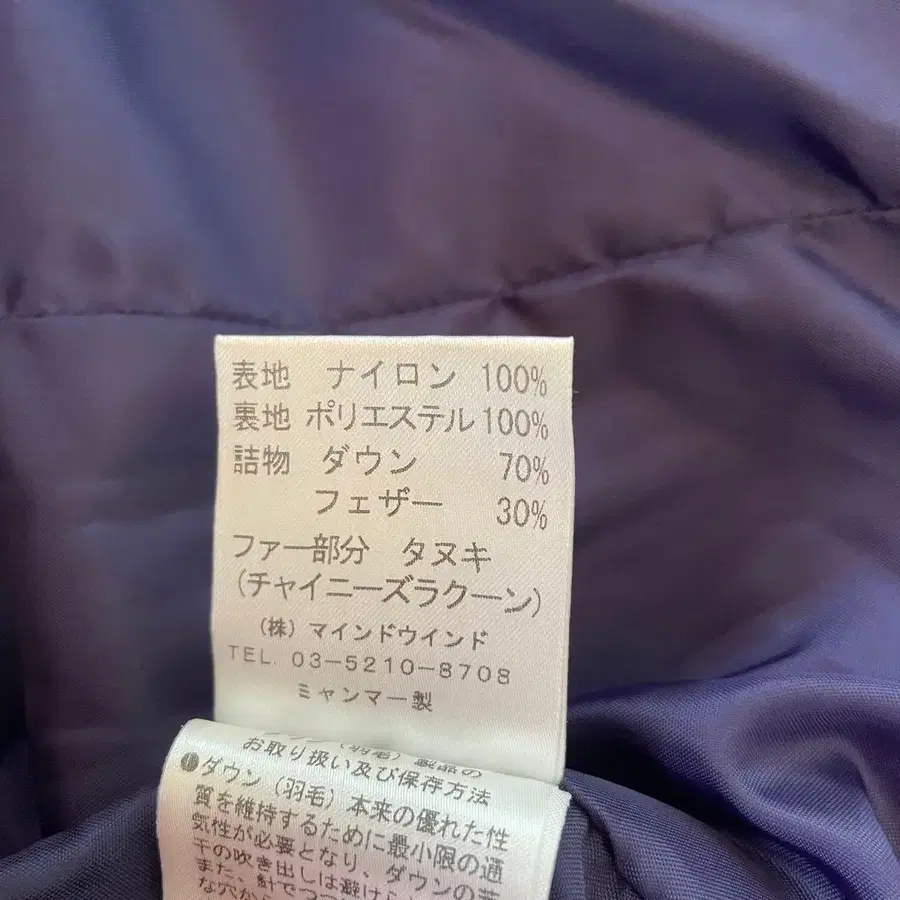 表地 ナイロン 100%
裏地 ポリエステル 100%
詰物 ダウン 70%
フェザー 30%
ファー部分 タヌキ
(チャイニーズラクーン)
(株) マインドウインド
TEL. 03-5210-8708
ミャンマー製
ダウン (羽毛) 製品の
お取り扱い及び保存方法
❶ダウン (羽毛) 本来の優れた性
質を維持するために最小限の通
気性が必要となり、ダウンの若
干の吹き出しは避けら
また、針でつ
な穴から